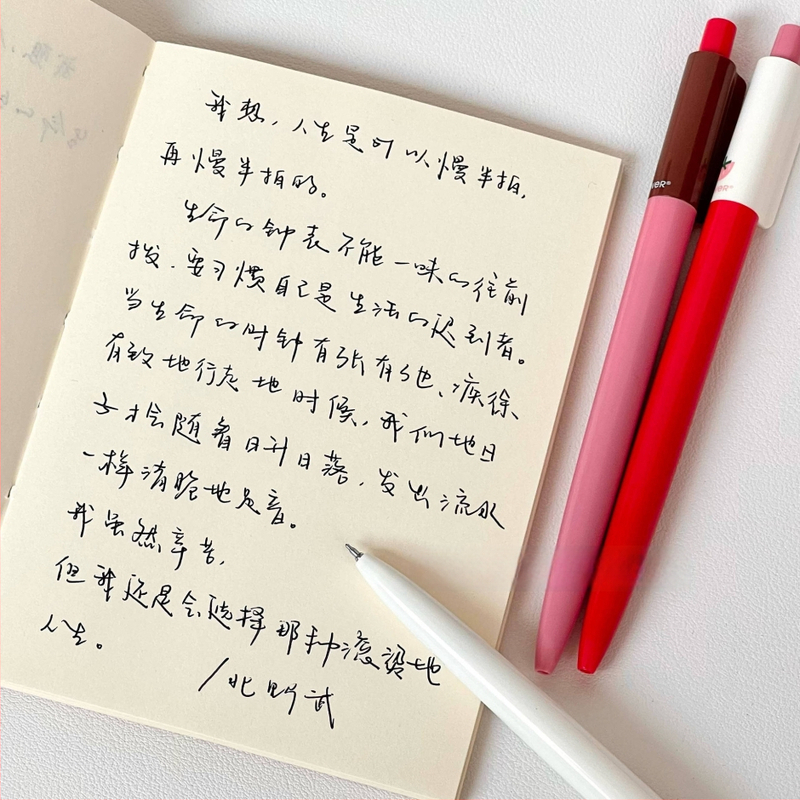 我想，人生是可以慢半拍，
再慢半拍的。
生命的钟表不能一味的往前
拨，要习惯自己是生活的迟到者。
当生命的时钟有张有弛、疾徐、
有致地行走地时候，我们地日
子才会随着日升日落，发出流水
一样清脆地足音。
我虽然辛苦，
但我还是会选择那种滚烫地
人生。
/北野武